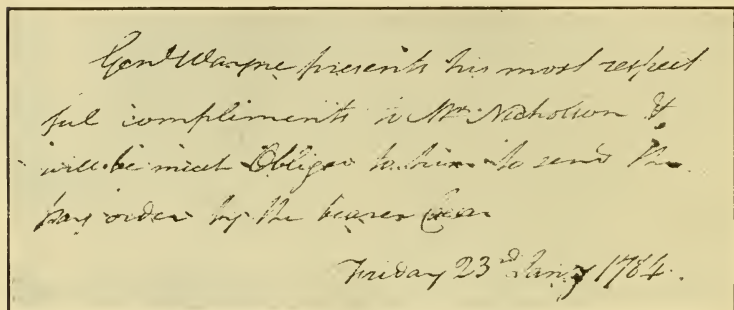 Genl Wayne presents his most respect
ful compliments to Mr Nicholson &
will be much Obliged to him to send the
pay order by the bearer
Friday 23d Jany 1784.